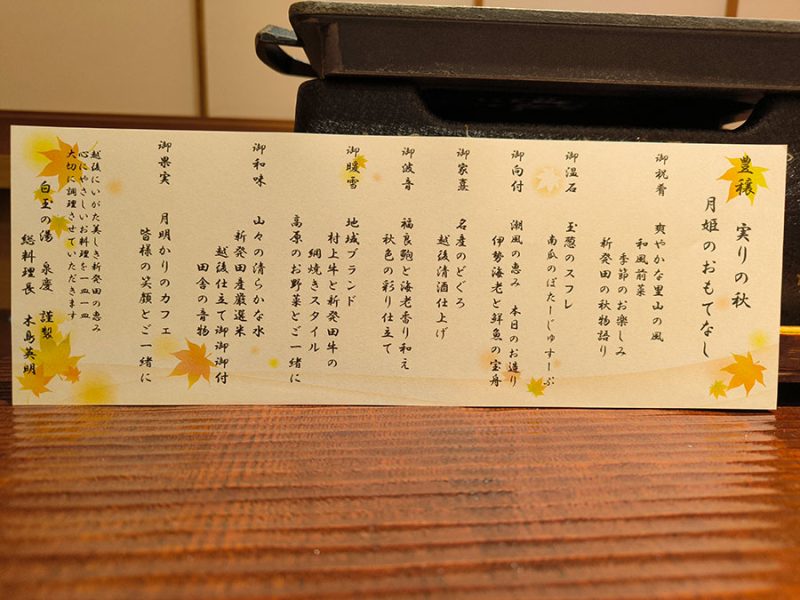 豊穣　実りの秋
月姫のおもてなし
御祝肴　爽やかな里山の風
和風前菜
季節のお楽しみ
新発田の秋物語り
御温石　玉葱のスフレ
南瓜のぽたーじゅすーぷ
御向付　潮風の恵み　本日のお造り
伊勢海老と鮮魚の宝舟
御家喜　名産のどぐろ
越後清酒仕上げ
御波音　福良鮑と海老香り和え
秋色の彩り仕立て
御暖雪　地域ブランド
村上牛と新発田牛の
網焼きスタイル
高原のお野菜とご一緒に
御和味　山々の清らかな水
新発田産厳選米
越後仕立て御御御付
田舎の音物
御果実　月明かりのカフェ
皆様の笑顔とご一緒に
越後にいがた美しき新発田の恵み
心にやさしいお料理を一皿一皿
大切に調理させていただきます
白玉の湯　泉慶　謹製
総料理長　木島英明